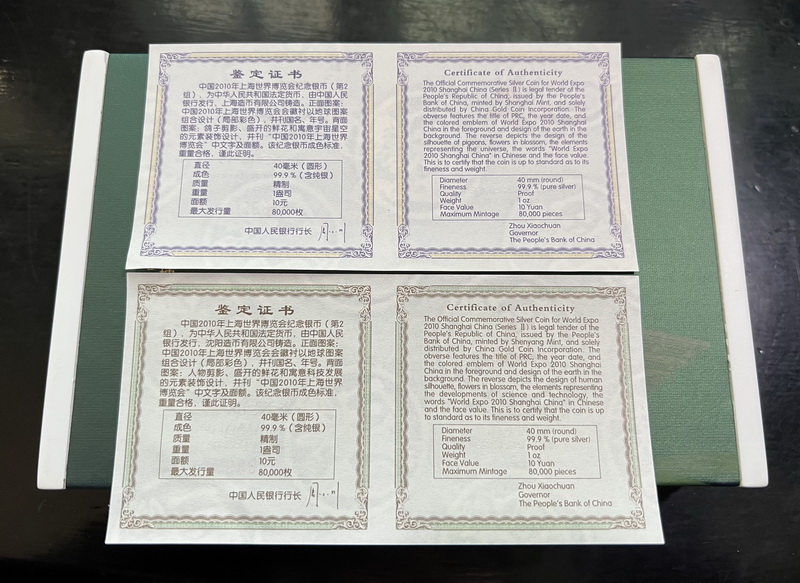 鉴定证书
中国2010年上海世界博览会纪念银币（第2
组），为中华人民共和国法定货币，由中国人民
银行发行，上海造币有限公司铸造。正面图案：
中国2010年上海世界博览会会徽衬以地球图案
组合设计（局部彩色），并刊国名、年号。背面
图案：鸽子剪影、盛开的鲜花和寓意宇宙星空
的元素装饰设计，并刊“中国2010年上海世界
博览会”中文字及面额。该纪念银币成色标准，
重量合格，谨此证明。
直径 40毫米（圆形）
成色 99.9%（含纯银）
质量 精制
重量 1盎司
面额 10元
最大发行量 80,000枚
中国人民银行行长
Certificate of Authenticity
The Official Commemorative Silver Coin for World Expo
2010 Shanghai China (Series Ⅱ) is legal tender of the
People's Republic of China, issued by the People's
Bank of China, minted by Shanghai Mint, and solely
distributed by China Gold Coin Incorporation. The
obverse features the title of PRC, the year date, and
the colored emblem of World Expo 2010 Shanghai
China in the foreground and design of the earth in the
background. The reverse depicts the design of the
silhouette of pigeons, flowers in blossom, the elements
representing the universe, the words "World Expo
2010 Shanghai China" in Chinese and the face value
This is to certify that the coin is up to standard as to its
fineness and weight.
Diameter 40 mm (round)
Fineness 99.9 % (pure silver)
Quality Proof
Weight 1 oz
Face Value 10 Yuan
Maximum Mintage 80,000 pieces
Zhou Xiaochuan
Governor
The People's Bank of China
鉴定证书
中国2010年上海世界博览会纪念银币（第2
组），为中华人民共和国法定货币，由中国人民
银行发行，沈阳造币有限公司铸造。正面图案：
中国2010年上海世界博览会会徽衬以地球图案
组合设计（局部彩色），并刊国名、年号。背面
图案：人物剪影、盛开的鲜花和寓意科技发展
的元素装饰设计，并刊“中国2010年上海世界
博览会”中文字及面额。该纪念银币成色标准，
重量合格，谨此证明。
直径 40毫米（圆形）
成色 99.9%（含纯银）
质量 精制
重量 1盎司
面额 10元
最大发行量 80,000枚
中国人民银行行长
Certificate of Authenticity
The Official Commemorative Silver Coin for World Expo
2010 Shanghai China (Series Ⅱ) is legal tender of the
People's Republic of China, issued by the People's
Bank of China, minted by Shenyang Mint, and solely
distributed by China Gold Coin Incorporation. The
obverse features the title of PRC, the year date, and
the colored emblem of World Expo 2010 Shanghai
China in the foreground and design of the earth in the
background. The reverse depicts the design of human
silhouette, flowers in blossom, the elements representing
the developments of science and technology, the
words "World Expo 2010 Shanghai China" in Chinese
and the face value. This is to certify that the coin is up
to standard as to its fineness and weight.
Diameter 40 mm (round)
Fineness 99.9 % (pure silver)
Quality Proof
Weight 1 oz
Face Value 10 Yuan
Maximum Mintage 80,000 pieces
Zhou Xiaochuan
Governor
The People's Bank of China